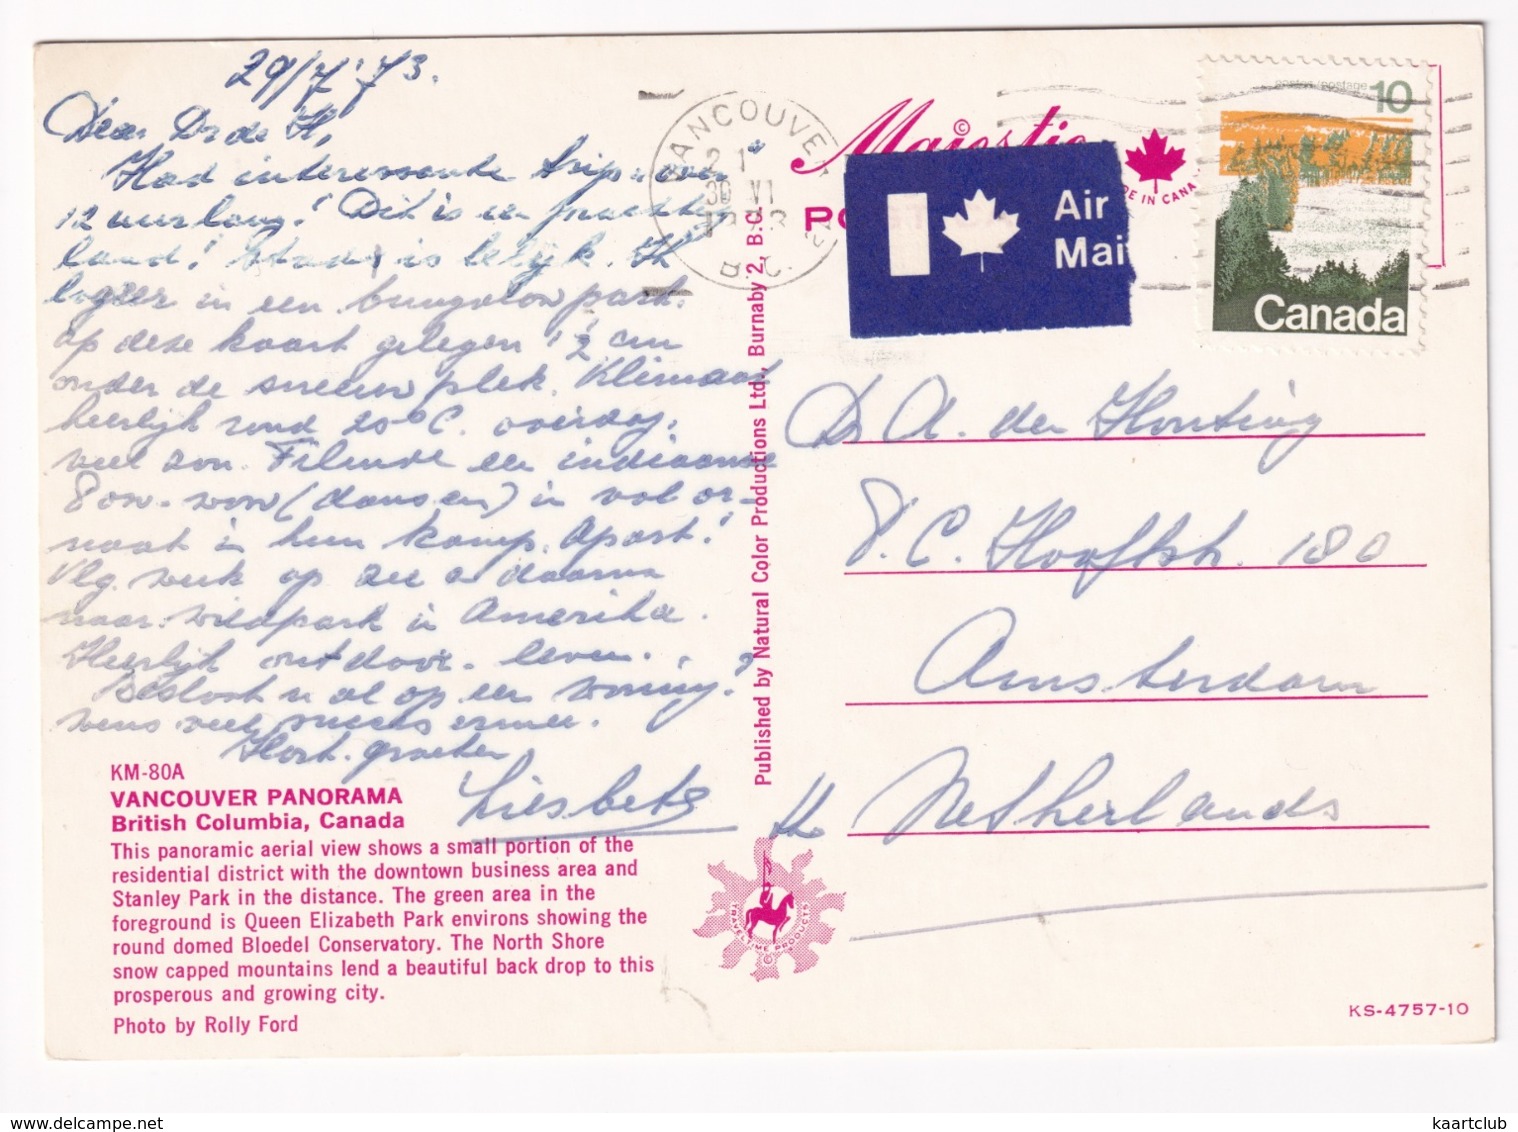 29/7 '73.
Dear Dr de H,
Had interessante trip over
12 uur lang! Dit is een prachtig
land! Stad is lelijk. Ik
logeer in een bungalowpark.
op deze kaart gelegen 1½ cm
onder de sneeuw plek. Klimaat
heerlijk rond 20°C. overdag,
veel zon. Filmde een indiaanse
Pow-wow (dansen) in vol or-
naat in hun kamp. Apart!
Vlg. week op zee en daarna
naar wildpark in Amerika.
Heerlijk outdoor-leven.
Besloot u al op een woning?
wens veel succes ermee.
Hart. groeten
Liesbeth
KM-80A
VANCOUVER PANORAMA
British Columbia, Canada
This panoramic aerial view shows a small portion of the
residential district with the downtown business area and
Stanley Park in the distance. The green area in the
foreground is Queen Elizabeth Park environs showing the
round domed Bloedel Conservatory. The North Shore
snow capped mountains lend a beautiful back drop to this
prosperous and growing city.
Photo by Rolly Ford
Published by Natural Color Productions Ltd., Burnaby 2, B.C.
VANCOUVER
30 VII
1973
B.C.
Majestic
Air
Mail
postes/postage 10
Canada
Dr A. den Honting
P.C. Hooftstr. 180
Amsterdam
the Netherlands
TRAVELTIME PRODUCTS
KS-4757-10
kaartclub
www.delcampe.net